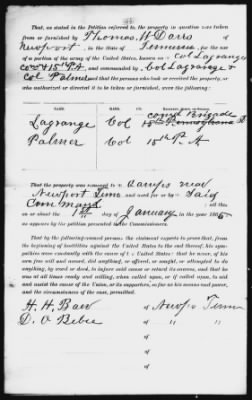 That, as stated in the Petition referred to, the property in question was taken
from or furnished by Thomas W Dorss of
Newport, in the State of Tennessee, for the use
of a portion of the army of the United States, known as Col Lagrange
15 Pa and commanded by Col Lagrange &
Col Palmer and that the persons who took or received the property, or
who authorized or directed it to be taken or furnished, were the following:
NAME. RANK.
Lagrange Col comd Brigade
Palmer Col 15th Pa
That the property was removed to a camps near
Newport Tenn and used for or by said
Command all this
on or about the 1st day of January in the year 1865
as appears by the petition presented to the Commissioners.
That by the following-named persons the claimant expects to prove that, from
the beginning of hostilities against the United States to the end thereof, his sym-
pathies were constantly with the cause of the United States; that he never, of his
own free will and accord, did anything, or offered, or sought, or attempted to do
anything, by word or deed, to injure said cause or retard its success, and that he
was at all times ready and willing, when called upon, or if called upon, to aid
and assist the cause of the Union, or its supporters, so far as his means and power,
and the circumstances of the case, permitted.
H. H. Baer of Newport Tenn
D. V. Bebee of " "
of
of
of